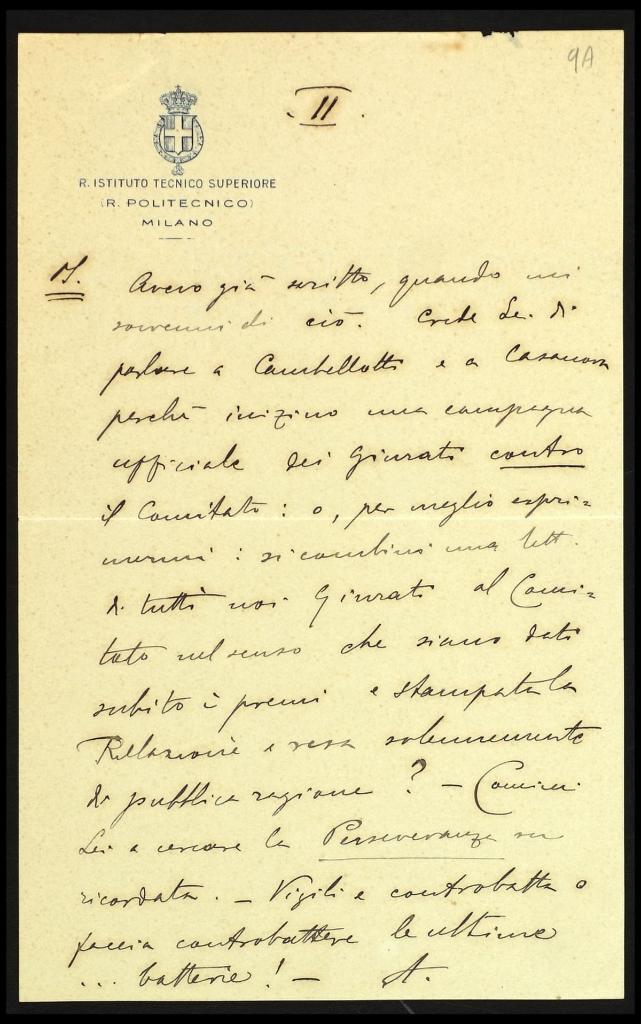 9A
II
R. ISTITUTO TECNICO SUPERIORE
(R. POLITECNICO)
MILANO
Avevo già scritto, quando mi
sovvenni di ciò. Crede Lei di
parlare a Cambellotti e a Casanova
perchè inizino una campagna
ufficiale dei Giurati contro
il Comitato: o, per meglio espri=
mermi: si combini una lett.
di tutti noi Giurati al Comi=
tato nel senso che siano dati
subito i premi e stampata la
Relazione e resa solennemente
di pubblica ragione? — Cominci
Lei a cercare la Perseveranza su
ricordata. — Vigili e controbatta o
faccia controbattere le ultime
... batterie! — A.